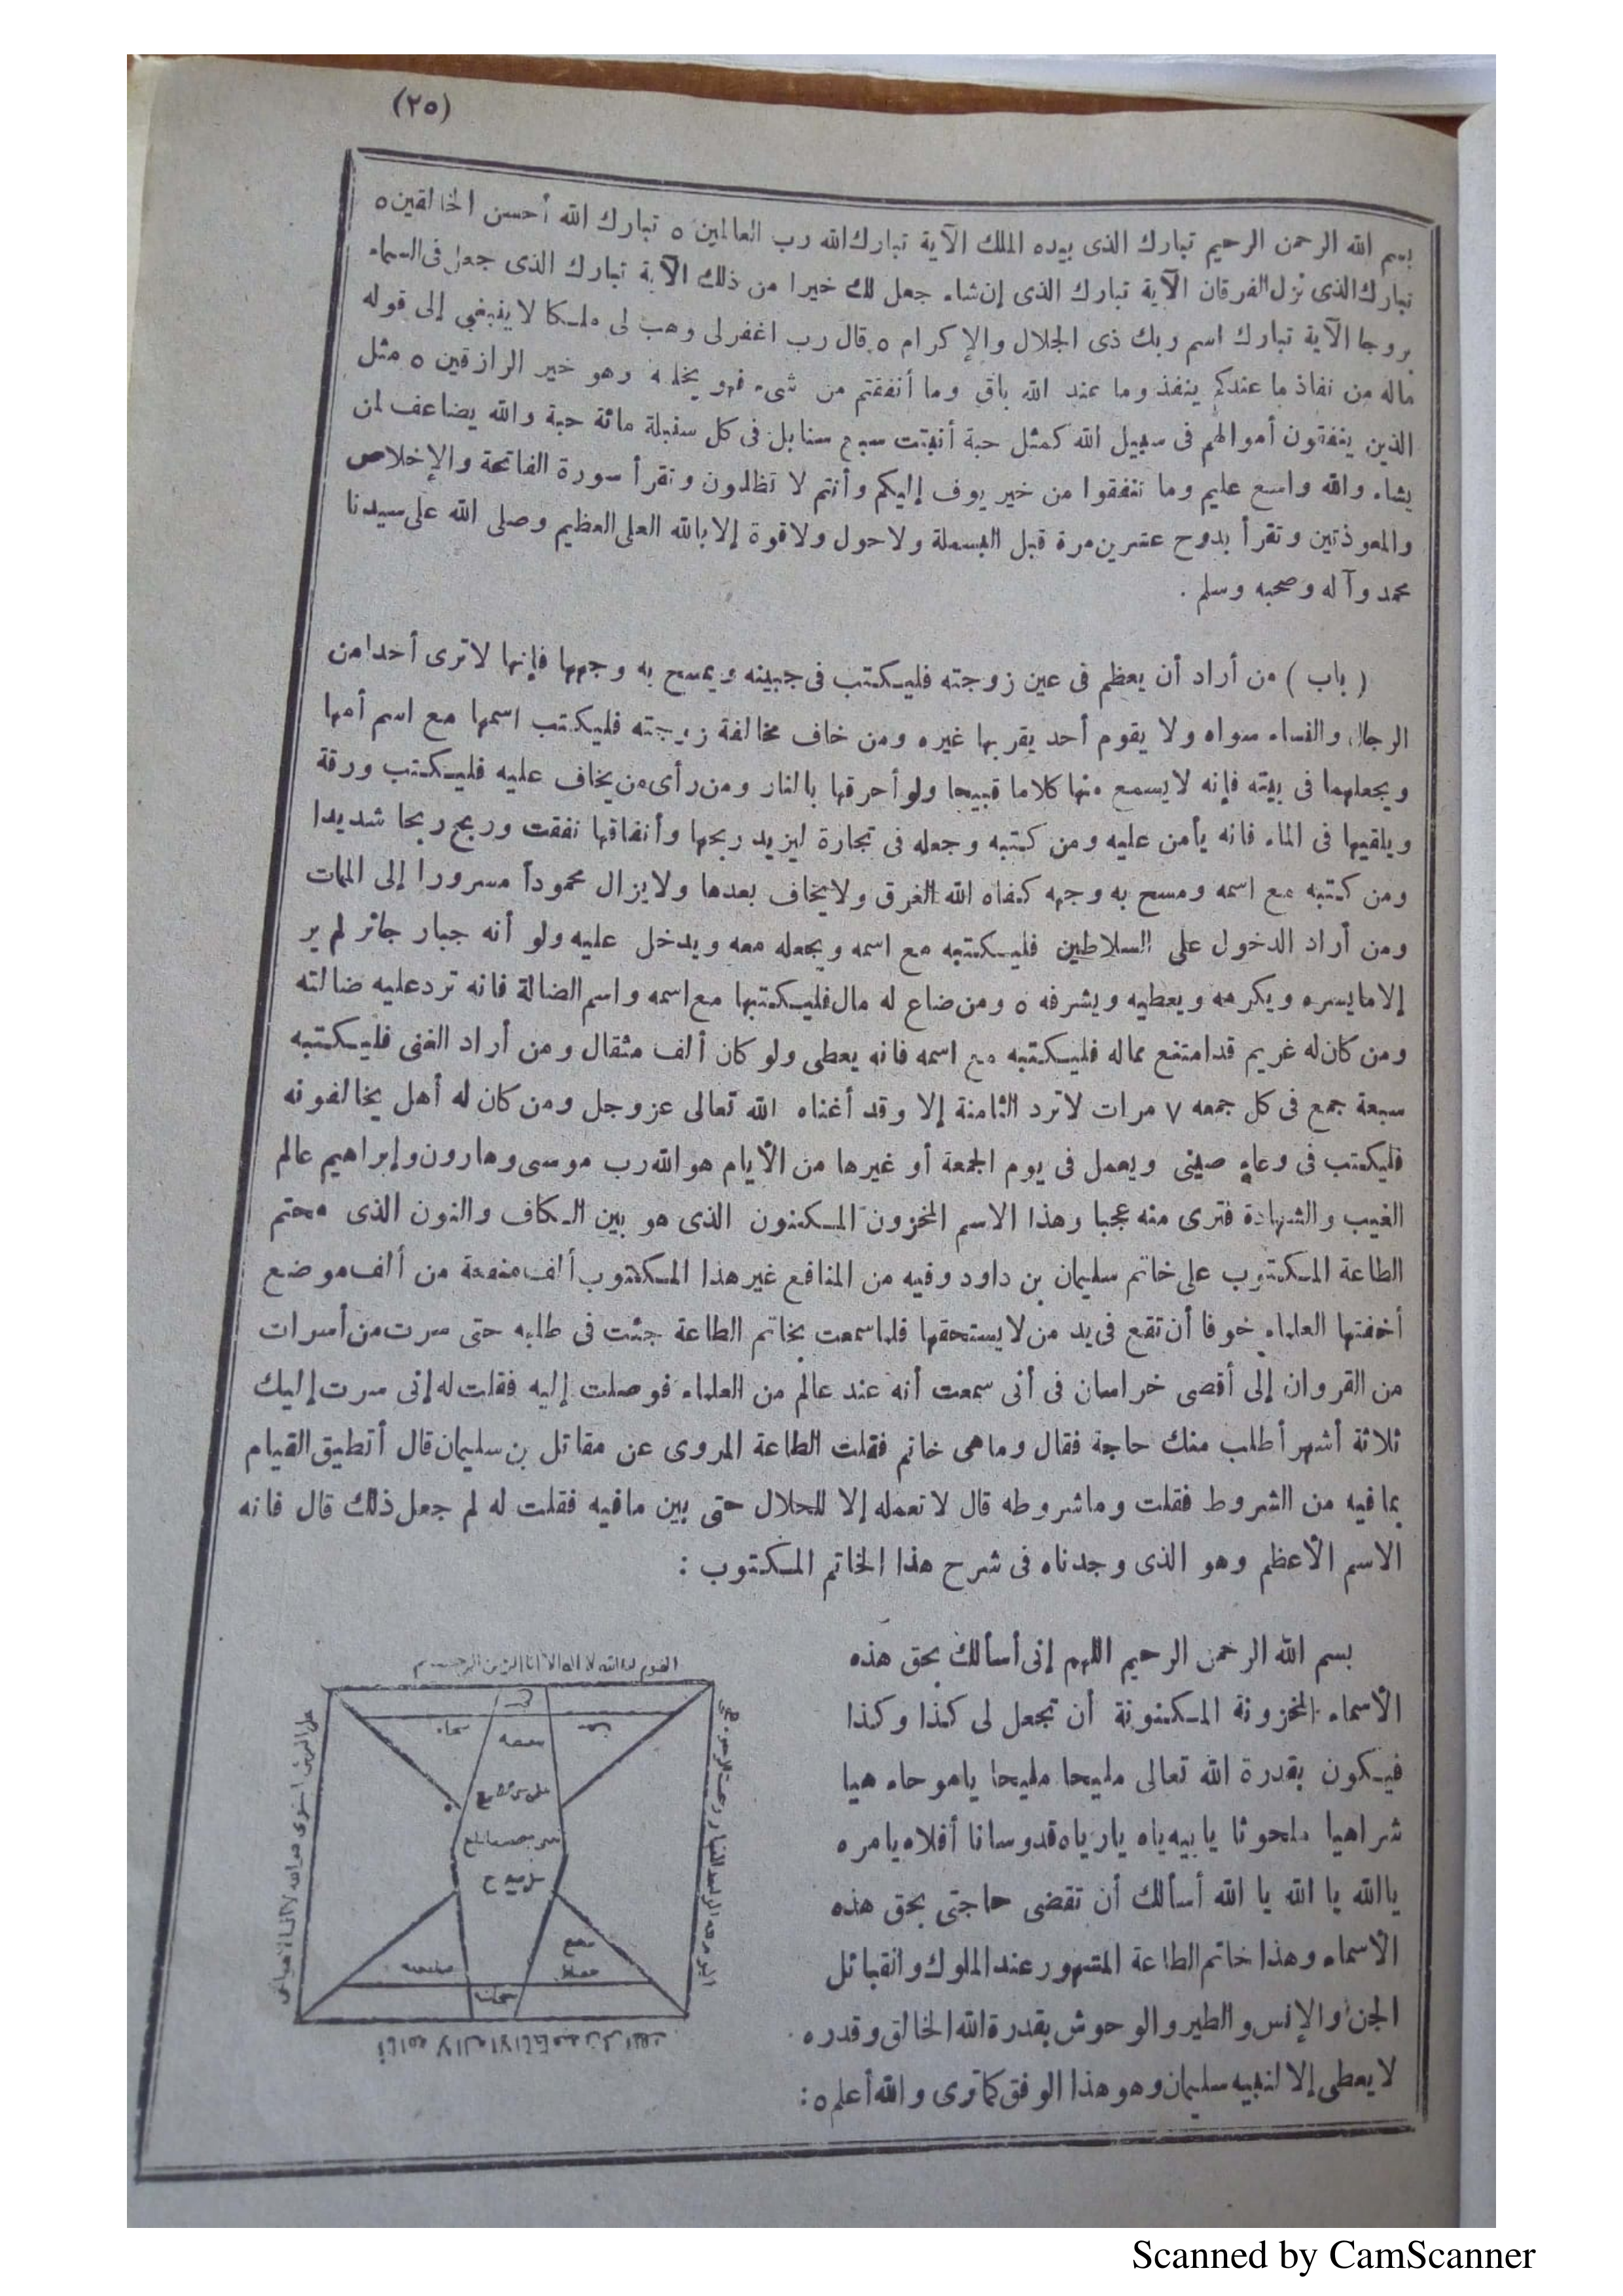 (٢٥)
بسم الله الرحمن الرحيم تبارك الذى بيده الملك الآية تبارك الله رب العالمين ٥ تبارك الله أحسن الخالقين ٥
تبارك الذى نزل الفرقان الآية تبارك الذى إن شاء جعل لك خيرا من ذلك الآية تبارك الذى جعل فى السماء
بروجا الآية تبارك اسم ربك ذى الجلال والإكرام ٥ قال رب اغفر لى وهب لى ملكا لا ينبغى إلى قوله
ماله من نفاذ ما عندكم ينفذ وما عند الله باق وما أنفقتم من شىء فهو يخلفه وهو خير الرازقين ٥ مثل
الذين ينفقون أموالهم فى سبيل الله كمثل حبة أنبتت سبع سنابل فى كل سنبلة مائة حبة والله يضاعف لمن
يشاء والله واسع عليم وما تنفقوا من خير يوف إليكم وأنتم لا تظلمون وتقرأ سورة الفاتحة والإخلاص
والمعوذتين وتقرأ بدوح عشرين مرة قبل البسملة ولا حول ولا قوة إلا بالله العلى العظيم وصلى الله على سيدنا
محمد وآله وصحبه وسلم .
( باب ) من أراد أن يعظم فى عين زوجته فليكتب فى جبينه ويمسح به وجهها فإنها لا ترى أحدا من
الرجال والنساء سواه ولا يقوم أحد يقربها غيره ومن خاف مخالفة زوجته فليكتب اسمها مع اسم أمها
ويجعلهما فى بيته فإنه لا يسمع منها كلاما قبيحا ولو أحرقها بالنار ومن رأى من يخاف عليه فليكتب ورقة
ويلقيها فى الماء فانه يأمن عليه ومن كتبه وجعله فى تجارة ليزيد ربحها وأنفاقها نفقت وربح ربحا شديدا
ومن كتبه مع اسمه ومسح به وجهه كفاه الله الغرق ولا يخاف بعدها ولا يزال محموداً مسرورا إلى الممات
ومن أراد الدخول على السلاطين فليكتبه مع اسمه ويجعله معه ويدخل عليه ولو أنه جبار جائر لم ير
إلا ما يسره ويكرمه ويعطيه ويشرفه ٥ ومن ضاع له مال فليكتبها مع اسمه واسم الضالة فانه ترد عليه ضالته
ومن كان له غريم قد امتنع بماله فليكتبه مع اسمه فانه يعطى ولو كان ألف مثقال ومن أراد الغنى فليكتبه
سبعة جمع فى كل جمعه ٧ مرات لا ترد الثامنة إلا وقد أغناه الله تعالى عز وجل ومن كان له أهل يخالفونه
فليكتب فى وعاء صينى ويعمل فى يوم الجمعة أو غيرها من الأيام هو الله رب موسى وهارون وإبراهيم عالم
الغيب والشهادة فترى منه عجبا وهذا الاسم المخزون المكنون الذى هو بين الكاف والنون الذى محتم
الطاعة المكتوب على خاتم سليمان بن داود وفيه من المنافع غير هذا المكتوب ألف منفعة من ألف موضع
أخفتها العلماء خوفا أن تقع فى يد من لا يستحقها فلما سمعت بخاتم الطاعة جئت فى طلبه حتى سرت من أسرات
من القروان إلى أقصى خراسان فى أنى سمعت أنه عند عالم من العلماء فوصلت إليه فقلت له إنى سرت إليك
ثلاثة أشهر أطلب منك حاجة فقال وما هى خاتم فقلت الطاعة المروى عن مقاتل بن سليمان قال أتطيق القيام
بما فيه من الشروط فقلت وما شروطه قال لا تعمله إلا للحلال حتى بين ما فيه فقلت له لم جعل ذلك قال فانه
الاسم الأعظم وهو الذى وجدناه فى شرح هذا الخاتم المكتوب :
بسم الله الرحمن الرحيم اللهم إنى أسألك بحق هذه
الأسماء المخزونة المكنونة أن تجعل لى كذا وكذا
فيكون بقدرة الله تعالى مليحا مليحا ياهو حاه هيا
شراهيا ملحوثا يا بيه ياه يارياه قدوسانا أفلاه يا مره
يا الله يا الله يا الله أسألك أن تقضى حاجتى بحق هذه
الأسماء وهذا خاتم الطاعة المشهور عند الملوك والقبائل
الجن والإنس والطير والوحوش بقدرة الله الخالق وقدره
لا يعطى إلا لنبيه سليمان وهو هذا الوفق كما ترى والله أعلم ٥ :
Scanned by CamScanner